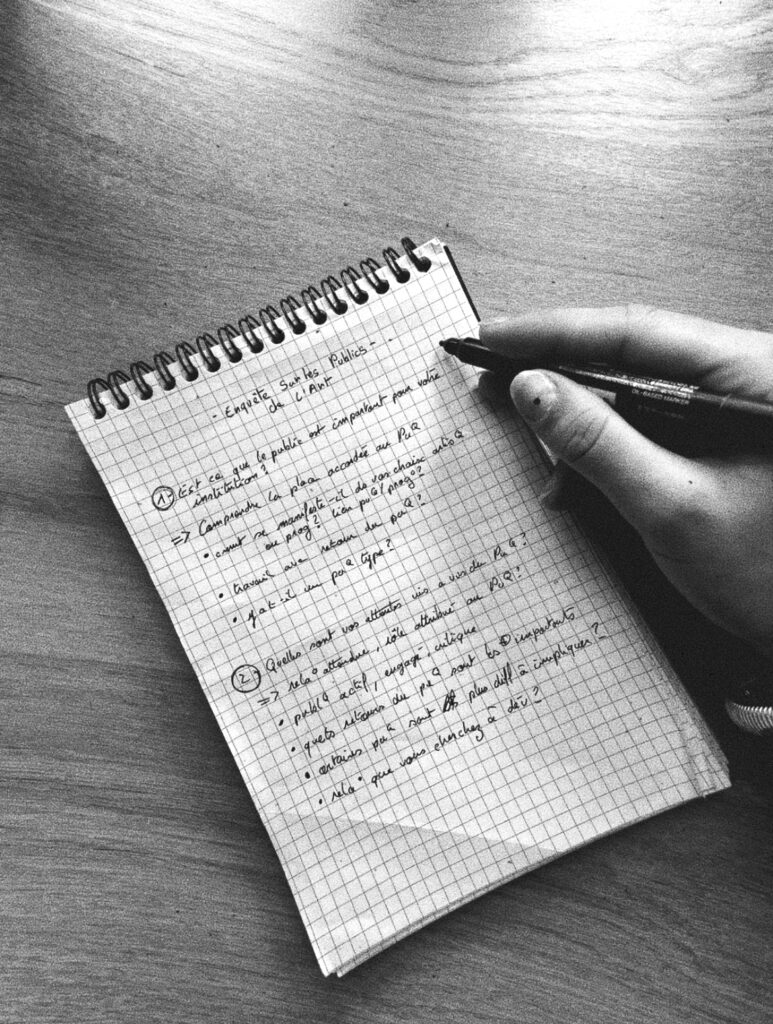 - Enquête Sur les Publics -
de l'Art
1- Est ce que le public est important pour votre
institution?
=> Comprendre la place accordée au PuQ
• cmnt se manifeste-il de vos choix artisQ
ou prog? lien puQ/prog°?
• travail avc retour du puQ?
• y at-il un puQ type?
2- Quelles sont vos attentes vis a vis du PuQ?
=> rela° attendue, rôle attribué au PuQ?
• publQ actif, engagé, critique
• quels retours du puQ sont les ⊕ importants
• certains puQ sont plus diff à impliquer?
• rela° que vous cherchez à dév?
OIL-BASED MARKER